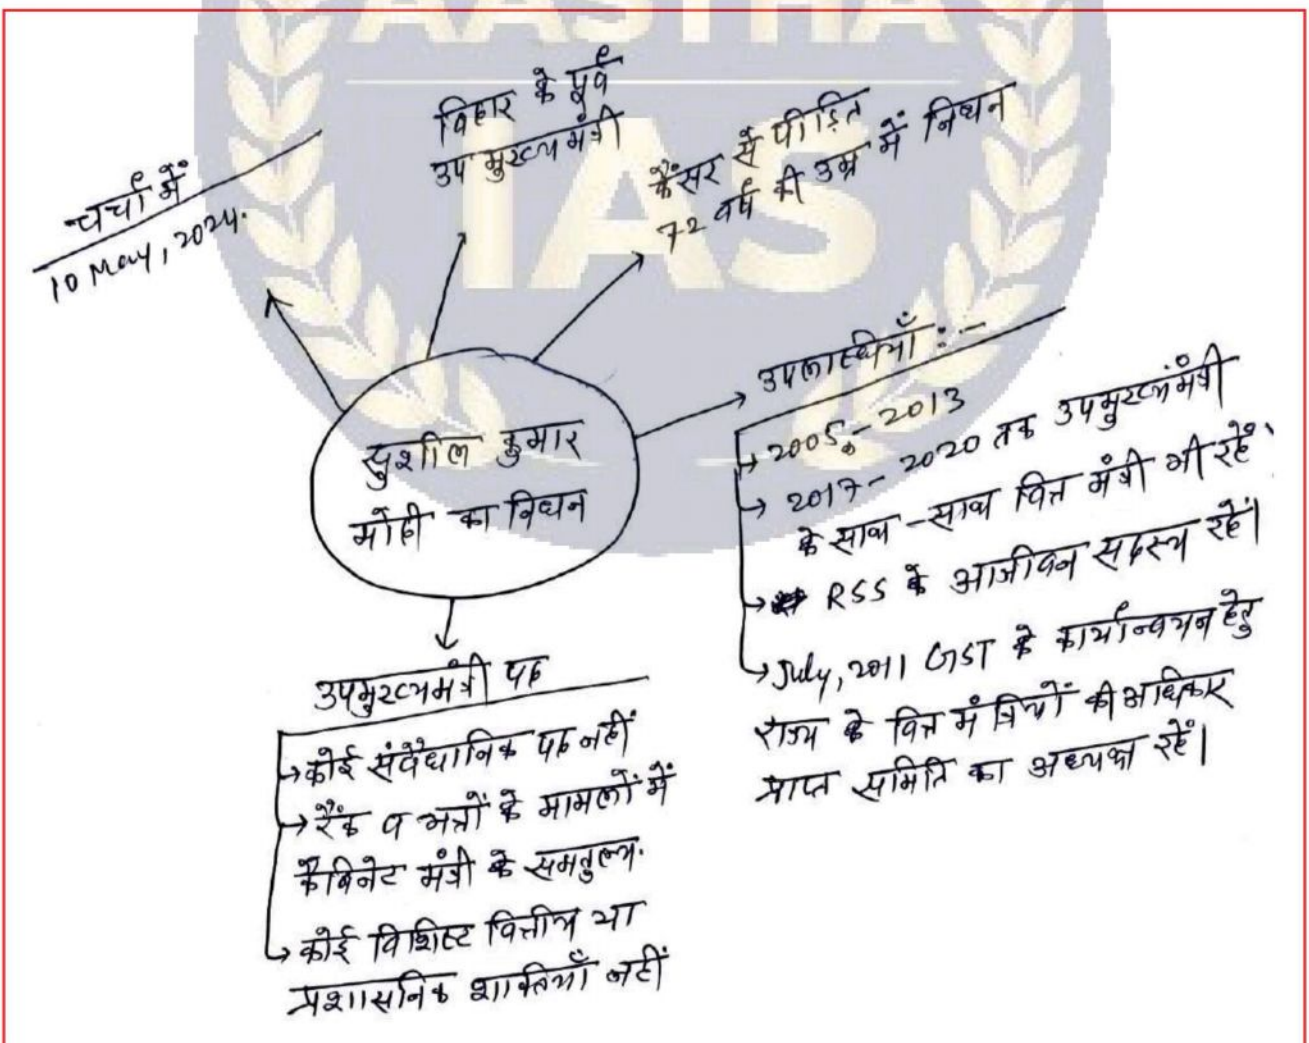 AASTHA
IAS
चर्चा में
10 May, 2024.
बिहार के पूर्व
उप मुख्यमंत्री
कैंसर से पीड़ित
72 वर्ष की उम्र में निधन
सुशील कुमार
मोदी का निधन
उपलब्धियाँ :-
→ 2005 - 2013
→ 2017 - 2020 तक उपमुख्यमंत्री
के साथ - साथ वित्त मंत्री भी रहें.
→ RSS के आजीवन सदस्य रहें।
→ July, 2011 GST के कार्यान्वयन हेतु
राज्य के वित्त मंत्रियों की अधिकार
प्राप्त समिति का अध्यक्ष रहें।
उपमुख्यमंत्री पद
→ कोई संवैधानिक पद नहीं
→ रैंक व भत्तों के मामलों में
कैबिनेट मंत्री के समतुल्य.
→ कोई विशिष्ट वित्तीय या
प्रशासनिक शक्तियाँ नहीं